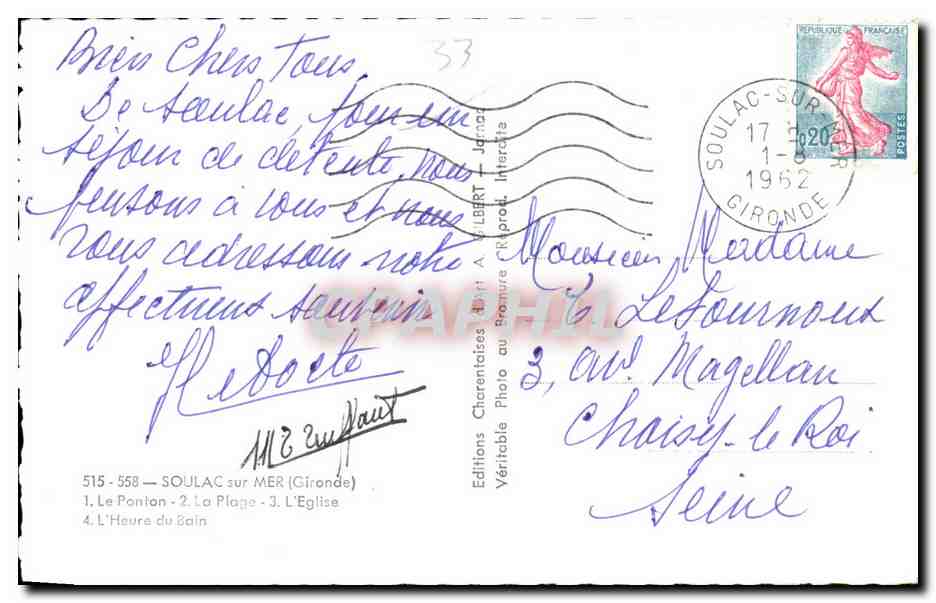 33
Bien Chers Tous,
De Soulac pour un
séjour de détente, nous
pensons à vous et nous
vous adressons notre
affectueux souvenir
515 - 558 — SOULAC sur MER (Gironde)
1. Le Ponton - 2. La Plage - 3. L'Eglise
4. L'Heure du Bain
Editions Charentaises d'Art A. GILBERT — Jarnac
Véritable Photo au Bromure (Reprod. Interdite
RÉPUBLIQUE FRANÇAISE
0,20
POSTES
SOULAC-SUR-MER
17
1-8
1962
GIRONDE
Monsieur Madame
LeTournoux
3, av. Magellan
Choisy-le Roi
Seine
CPAPHIL